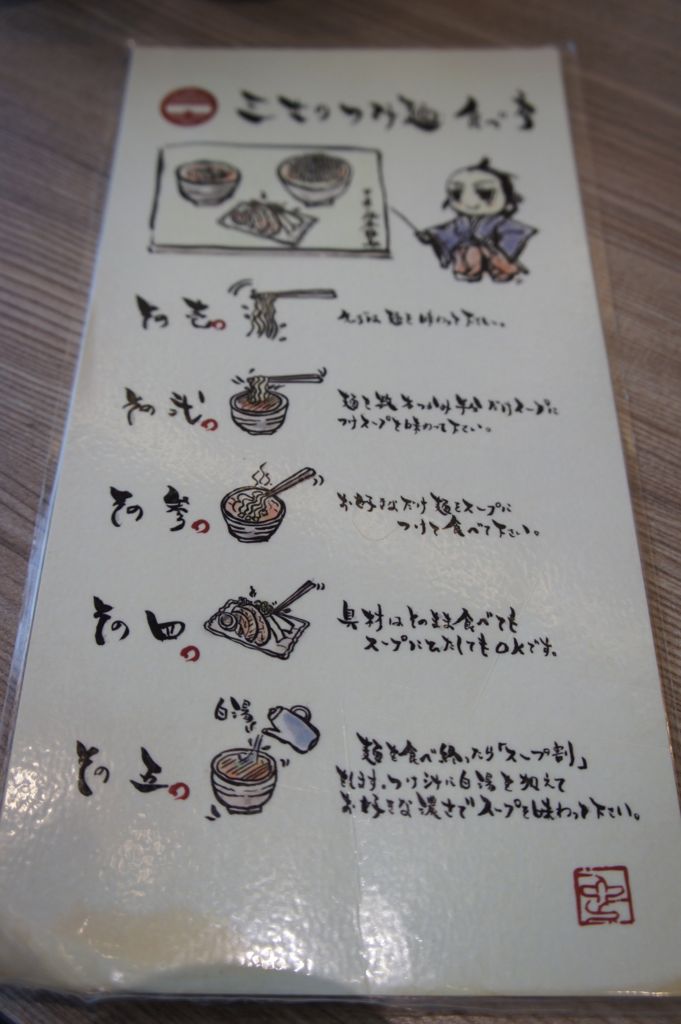 つけ麺 食べ方
その 壱。
まずは 麺を 味わって下さい。
その 弐。
麺を数本つかみ半分だけスープに
つけスープを味わって下さい。
その 参。
お好きなだけ麺をスープに
つけて食べて下さい。
その 四。
具材はそのまま食べても
スープに入れてもOKです。
その 五。
白湯
麺を食べ終ったら「スープ割」
をします。つけ汁に白湯を加えて
お好きな濃さでスープを味わって下さい。